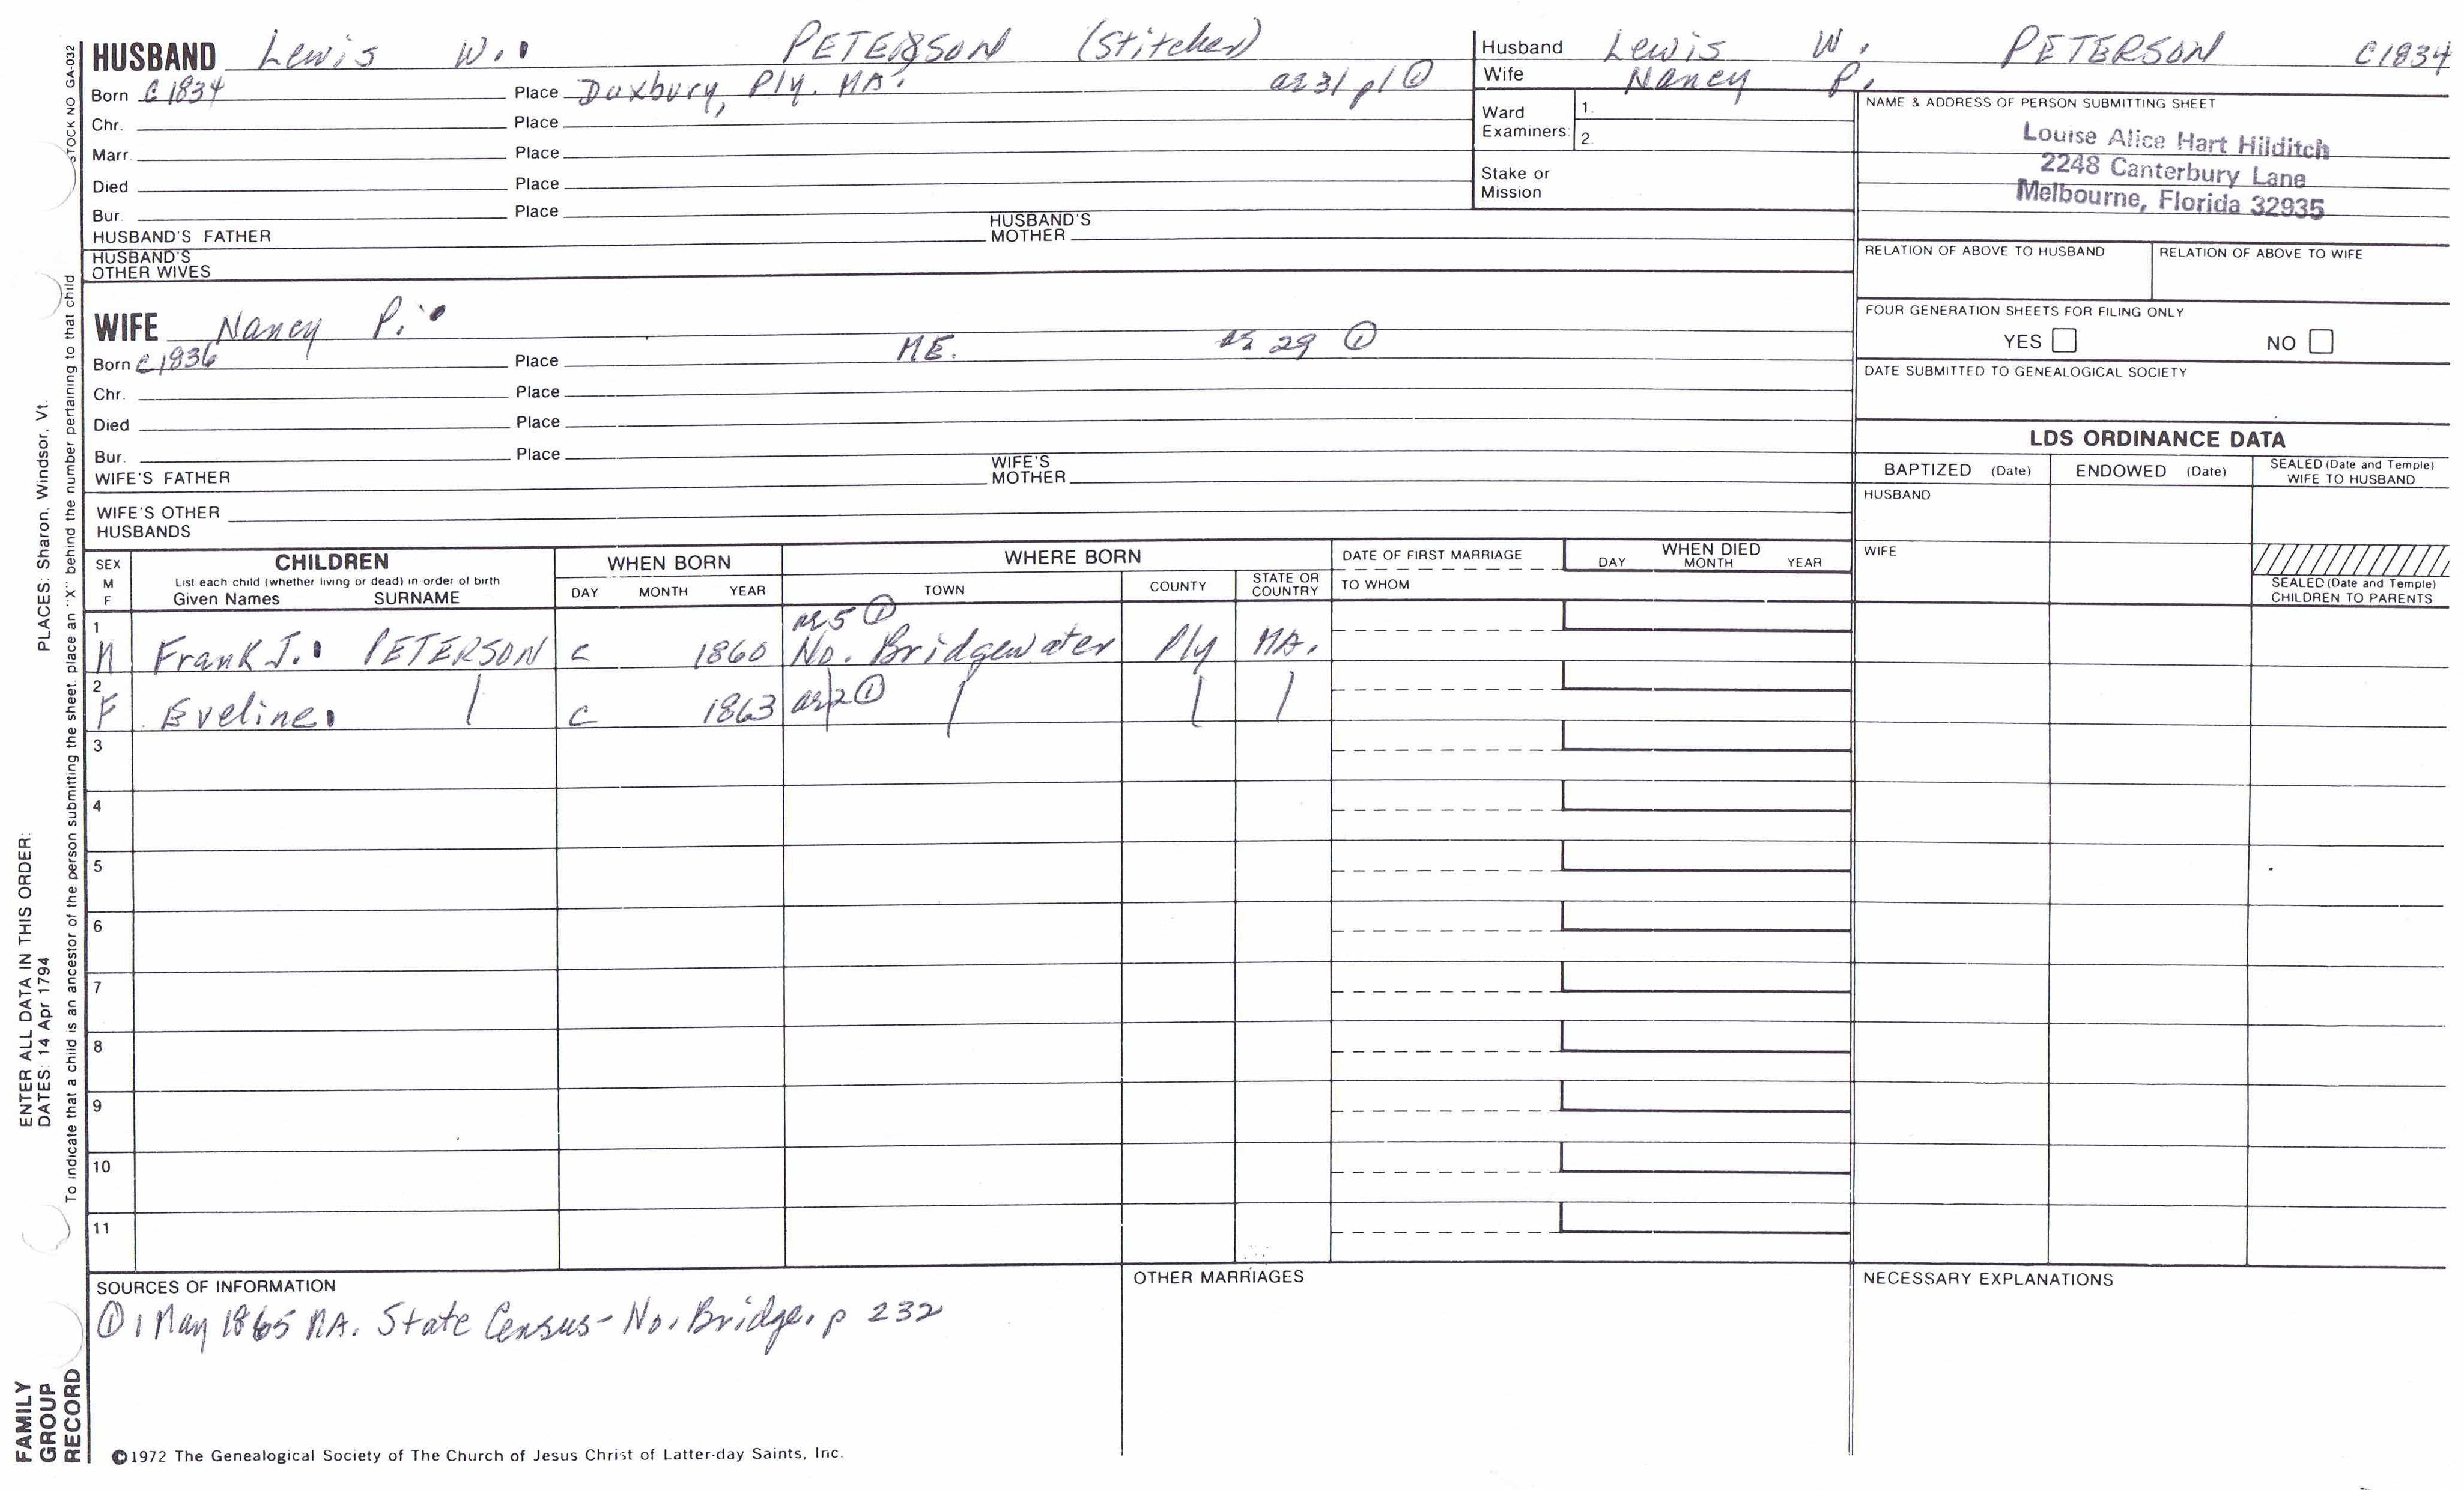 HUSBAND Lewis W. PETERSON (Stitcher)
Born c 1834 Place Duxbury, Ply. MA.
Chr. Place
Marr. Place
Died Place
Bur. Place
HUSBAND'S FATHER HUSBAND'S MOTHER
HUSBAND'S OTHER WIVES
Husband Lewis W. PETERSON C1834
Wife Nancy P.
Ward Examiners: 1.
2.
Stake or Mission
NAME & ADDRESS OF PERSON SUBMITTING SHEET
Louise Alice Hart Hilditch
2248 Canterbury Lane
Melbourne, Florida 32935
RELATION OF ABOVE TO HUSBAND RELATION OF ABOVE TO WIFE
FOUR GENERATION SHEETS FOR FILING ONLY
YES NO
DATE SUBMITTED TO GENEALOGICAL SOCIETY
WIFE Nancy P.
Born c 1836 Place ME. 29 ①
Chr. Place
Died Place
Bur. Place
WIFE'S FATHER WIFE'S MOTHER
WIFE'S OTHER HUSBANDS
LDS ORDINANCE DATA
BAPTIZED (Date) ENDOWED (Date) SEALED (Date and Temple) WIFE TO HUSBAND
HUSBAND
WIFE
SEALED (Date and Temple) CHILDREN TO PARENTS
SEX M F
CHILDREN
List each child (whether living or dead) in order of birth
Given Names SURNAME
WHEN BORN
DAY MONTH YEAR
WHERE BORN
TOWN COUNTY STATE OR COUNTRY
DATE OF FIRST MARRIAGE
TO WHOM
WHEN DIED
DAY MONTH YEAR
5 ①
1 M Frank J. PETERSON c 1860 No. Bridgewater Ply MA.
2 F Eveline c 1863 2 ①
3
4
5
6
7
8
9
10
11
SOURCES OF INFORMATION
① 1 May 1865 MA. State Census - No. Bridge. p 232
OTHER MARRIAGES
NECESSARY EXPLANATIONS
©1972 The Genealogical Society of The Church of Jesus Christ of Latter-day Saints, Inc.
STOCK NO GA-032
To indicate that a child is an ancestor of the person submitting the sheet, place an "X" behind the number pertaining to that child
ENTER ALL DATA IN THIS ORDER:
DATES: 14 Apr 1794 PLACES: Sharon, Windsor, Vt.
FAMILY
GROUP
RECORD